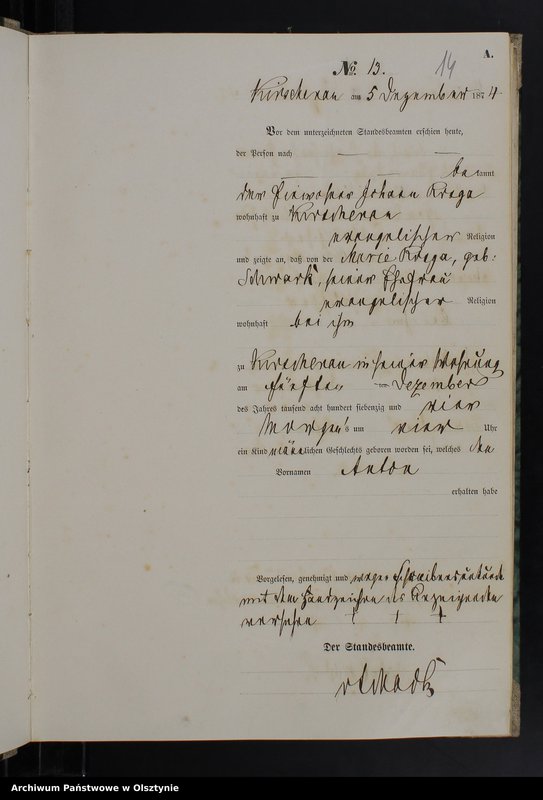 A.
No. 13.
14
Kirschenau am 5 Dezember 1874
Vor dem unterzeichneten Standesbeamten erschien heute,
der Person nach
bekannt
der Einwohner Johann Kroga
wohnhaft zu Kirschenau
evangelischer Religion
und zeigte an, daß von der Marie Kroga, geb:
Schwark, seiner Ehefrau
evangelischer Religion
wohnhaft bei ihm
zu Kirschenau in seiner Wohnung
am fünften ten Dezember
des Jahres tausend acht hundert siebenzig und vier
Morgens um vier Uhr
ein Kind männlichen Geschlechts geboren worden sei, welches den
Vornamen Anton
erhalten habe
Vorgelesen, genehmigt und wegen Schreibensunkunde
mit dem Handzeichen des Anzeigenden
versehen + + +
Der Standesbeamte.
Archiwum Państwowe w Olsztynie